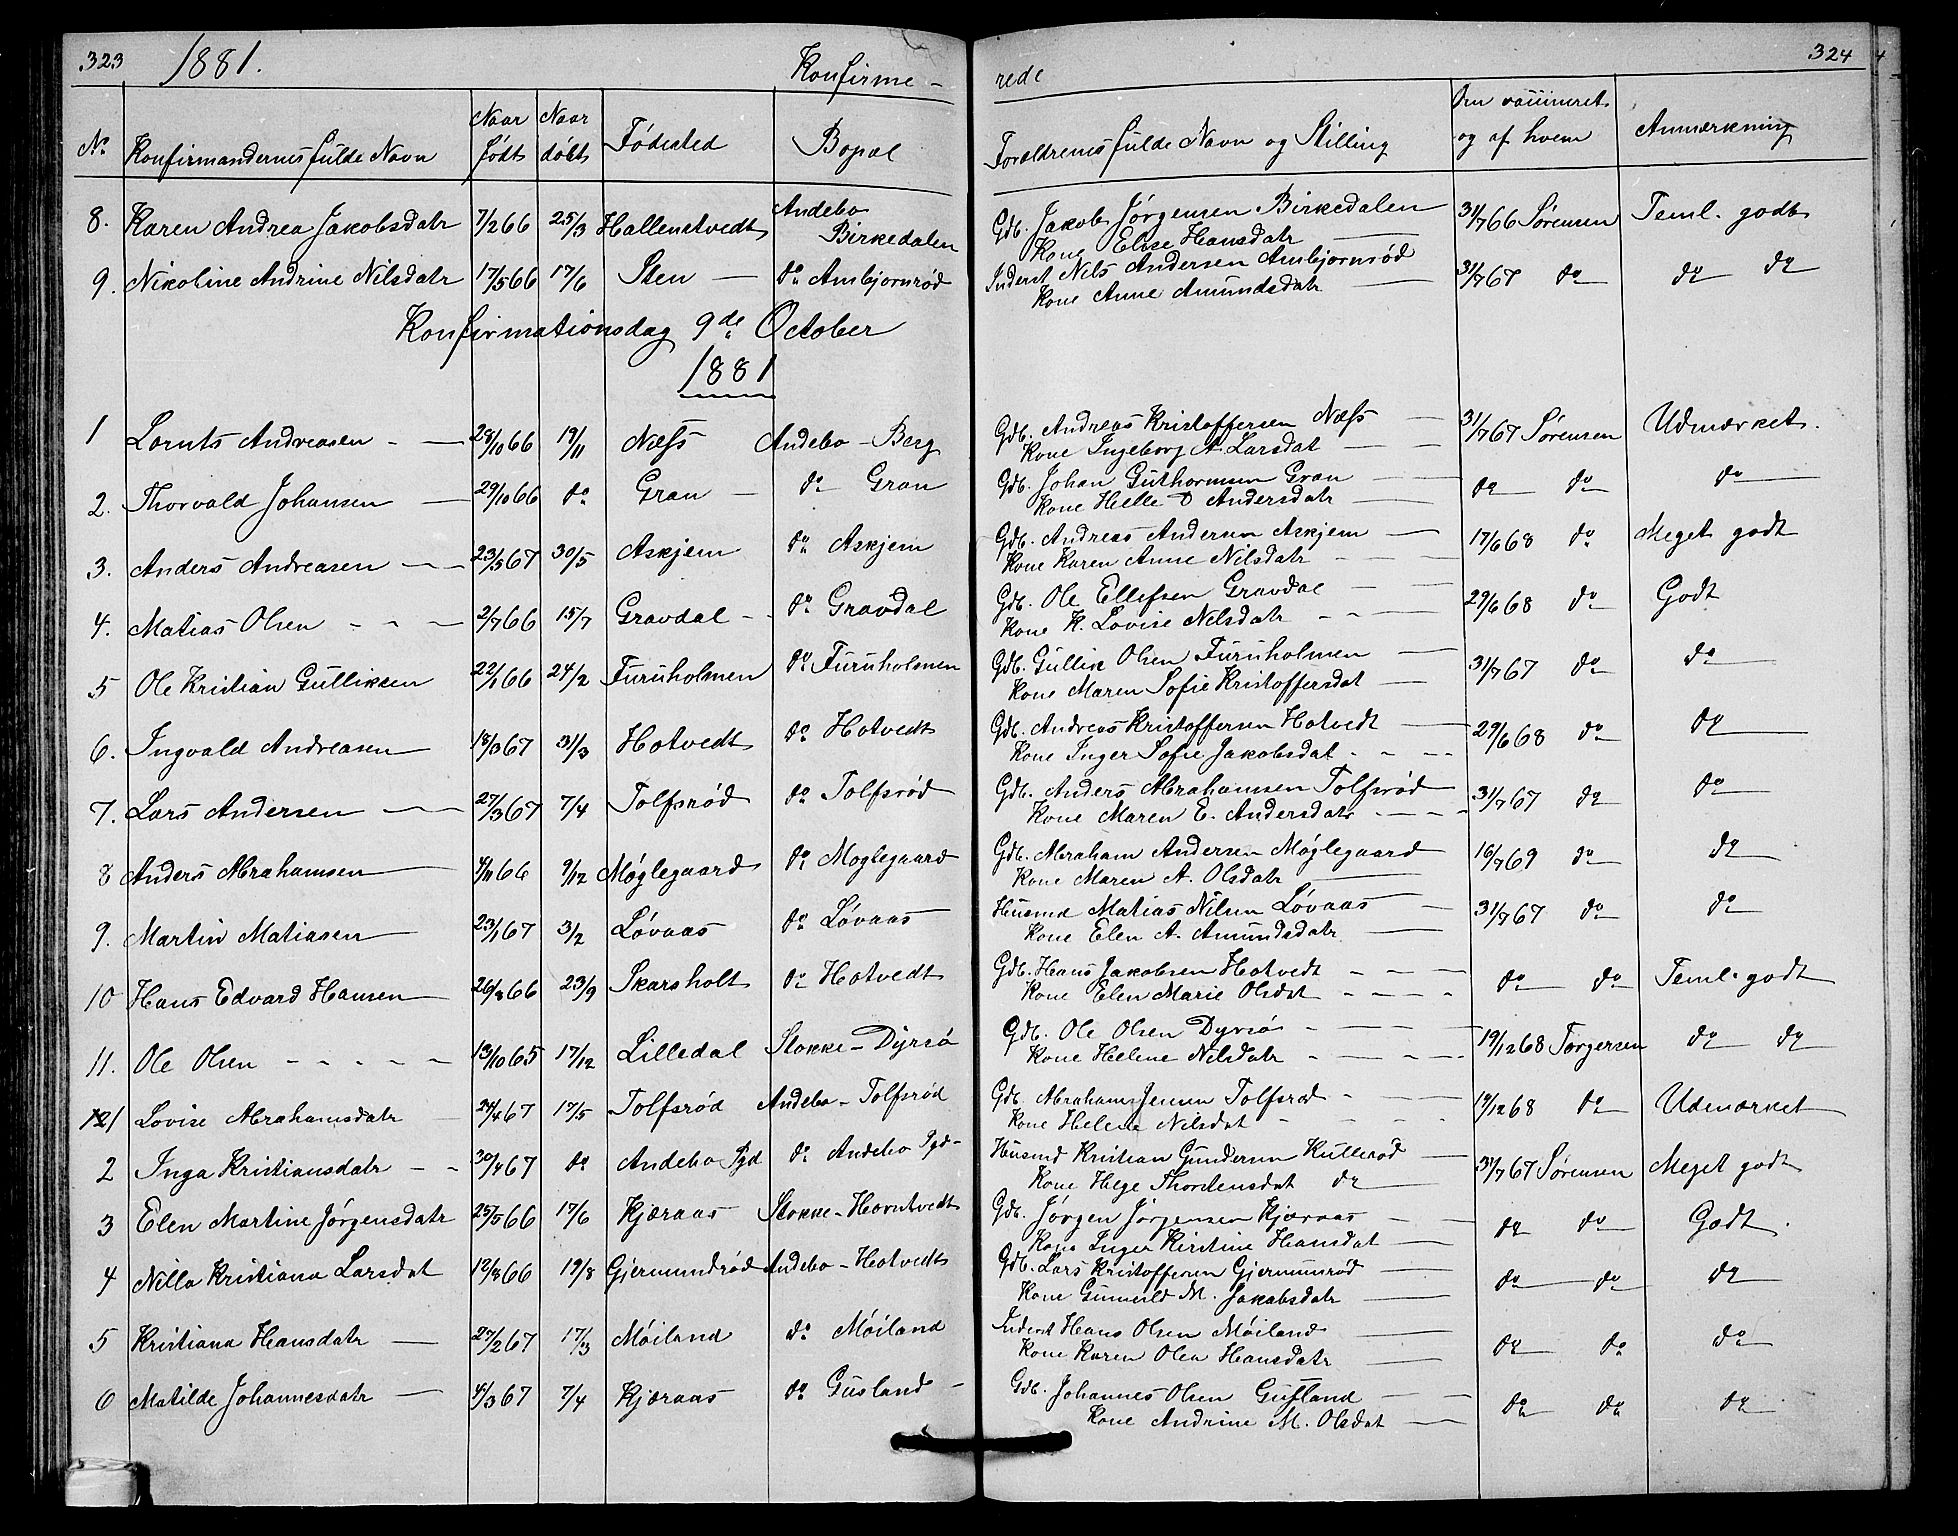 323 1881. Konfirme- rede 324
No Konfirmandernes fulde Navn Naar født Naar døbt Fødested Bopæl Forældrenes fulde Navn og Stilling Om vaccineret og af hvem Anmærkning
8. Karen Andrea Jakobsdatr 7/2 66 25/3 Hallenstvedt Andebo Birkedalen Gdb. Jakob Jørgensen Birkedalen 31/7 66 Sørensen Teml. godt
Kone Elise Hansdatr —
9. Nikoline Andrine Nilsdatr 17/5 66 17/6 Sten — do Ambjornrød Inderst Nils Andersen Ambjornrød 31/7 67 do do do
Kone Anne Amundsdatr —
Konfirmationsdag 9de October
1881
1 Lornts Andreasen - — 28/10 66 19/11 Næss Andebo - Berg Gdb. Andreas Kristoffersen Næss — 31/7 67 Sørensen Udmærket.
Kone Ingeborg A Larsdat —
2. Thorvald Johansen — 29/10 66 do Gran — do Gran Gdb. Johan Guthormsen Gran — do do do
Kone Helle D Andersdatr —
3. Anders Andreasen — 23/5 67 30/5 Askjem do Askjem Gdb. Andreas Andersen Askjem — 17/6 68 do Meget godt
Kone Karen Anne Nilsdatr —
4. Matias Olsen - - — 2/7 66 15/7 Gravdal - - do Gravdal Gdb. Ole Ellefsen Gravdal — 29/6 68 do Godt
Kone K. Lovise Nilsdatr - -
5 Ole Kristian Gulliksen 22/1 66 24/2 Furuholmen do Furuholmen Gdb. Gullik Olsen Furuholmen — 31/7 67 do do
Kone Maren Sofie Kristoffersdat —
6. Ingvald Andreasen 18/3 67 31/3 Hotvedt do Hotvedt Gdb. Andreas Kristoffersen Hotvedt — 29/6 68 do do
Kone Inger Sofie Jakobsdat - -
7. Lars Andersen — 27/3 67 7/4 Tolfsrød do Tolfsrød Gdb. Anders Abrahamsen Tolfsrød 31/7 67 do do
Kone Maren E. Andersdatr - - -
8 Anders Abrahamsen 4/11 66 9/12 Møglegaard do Moglegaard Gdb. Abraham Andersen Møglegaard 16/7 69 do do
Kone Maren A. Olsdatr —
9. Martin Matiasen 23/1 67 3/2 Løvaas do Løvaas Husmd Matias Nilsen Løvaas — 31/7 67 do do
Kone Elen A. Amundsdatr —
10 Hans Edvard Hansen 26/8 66 23/9 Skarsholt do Hotvedt Gdb. Hans Jakobsen Hotvedt - - - do do Teml. godt
Kone Elen Marie Olsdat - - -
11. Ole Olsen - - - - 13/10 65 17/12 Lilledal Stokke - Dyrsø Gdb. Ole Olsen Dyrsö - — 19/12 68 Torgersen do do
Kone Helene Nilsdatr - - -
1 Lovise Abrahamsdatr 24/4 67 17/5 Tolfsrød Andebo - Tolfsrød Gdb. Abraham Jensen Tolfsrød - 19/12 68 do Udmærket
Kone Helene Nilsdat - -
2 Inga Kristiansdatr - - 30/4 67 do Andebo Pgd do Andebo Pgd- Husmd Kristian Gundersen Kullerød 31/7 67 Sørensen Meget godt
Kone Helge Thordensdat do
3 Elen Martine Jørgensdatr 25/5 66 17/6 Kjæraas Stokke - Horntvedt Gdb. Jørgen Jørgensen Kjæraas - do do Godt.
Kone Inger Kirstine Hansdat —
4 Nilla Kristiana Larsdat 12/8 66 19/8 Gjermundrød Andebo - Hotvedt Gdb. Lars Kristoffersen Gjermunrød — do do do
Kone Gunneild M. Jakobsdatr —
5 Kristiana Hansdatr — 27/2 67 17/3 Møiland do Møiland Inderst Hans Olsen Møiland — do do do
Kone Karen Olea Hansdatr —
6 Matilde Johannesdatr — 4/3 67 7/4 Kjæraas do Gusland - Gdb. Johannes Olsen Gusland — do do do
Kone Andrine M. Olsdat —